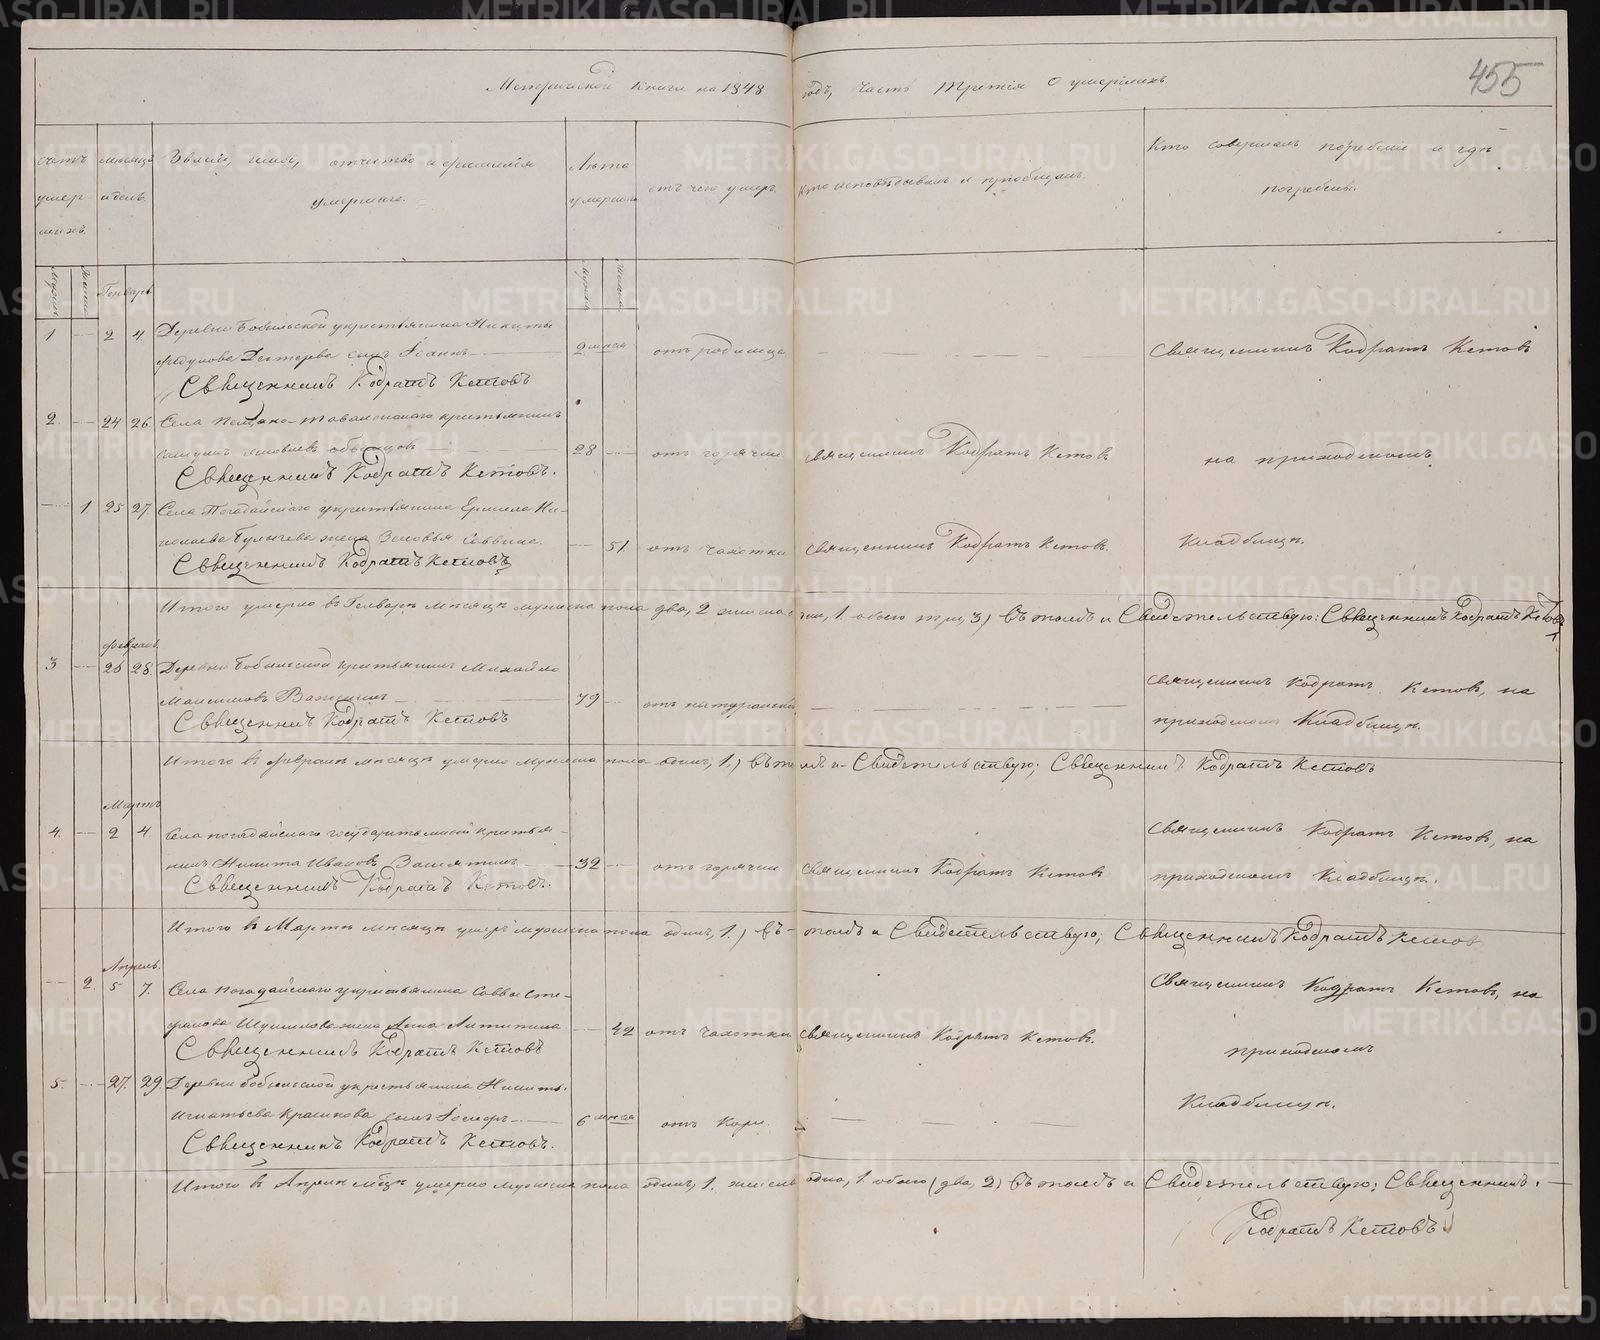 455
Метрической книги на 1848 годъ, часть третія о умершихъ
Счетъ умер-шихъ.
Мѣсяцъ и день.
Званіе, имя, отчество и фамилія умершаго.
Лѣта умершаго
отъ чего умеръ
кто исповѣдывалъ и пріобщалъ.
Кто совершалъ погребеніе и гдѣ погребены.
Генварь
1 2 4. Деревни Бобыльской у крестьянина Никиты
сынъ Іоаннъ 2 мѣся отъ родимца Священникъ Кодратъ Кетовъ
Священникъ Кодратъ Кетовъ
2 24 26 Села крестьянинъ
28 отъ горячки священникъ Кодратъ Кетовъ на приходскомъ
Священникъ Кодратъ Кетовъ.
1. 25 27. Села Погадайскаго у крестьянина Ермила Ни-
колаева Булычева жена Зеновья Саввина 51. отъ чахотки священникъ Кодратъ Кетовъ. Кладбищѣ.
Священникъ Кодратъ Кетовъ
Итого умерло въ Генварѣ мѣсяцѣ мужеска пола два, 2 женска одна, 1. обоего три, 3) Въ томъ и Свидетельствую: Священникъ Кодратъ Кетовъ
Февраль
3 26 28. Деревни Бобыльской крестьянинъ Михайло
Максимовъ 79 отъ натуральной священникъ Кодратъ Кетовъ, на
Священникъ Кодратъ Кетовъ приходскомъ Кладбищѣ.
Итого въ Февралѣ мѣсяцѣ умерло мужеска пола одинъ, 1.) Въ томъ и Свидетельствую; Священникъ Кодратъ Кетовъ
Мартъ
4. 2 4. Села Погадайскаго государственной крестья-
нинъ Никита Ивановъ 32 отъ горячки священникъ Кодратъ Кетовъ Священникъ Кодратъ Кетовъ, на
Священникъ Кодратъ Кетовъ. приходскомъ Кладбищѣ.
Итого въ Мартѣ мѣсяцѣ умеръ мужеска пола одинъ, 1.) Въ томъ и Свидетельствую; Священникъ Кодратъ Кетовъ
Апрель.
2. 5 7. Села Погадайскаго у крестьянина Саввы Сте-
фанова жена Анна 42 отъ чахотки священникъ Кодратъ Кетовъ. Священникъ Кодратъ Кетовъ, на
Священникъ Кодратъ Кетовъ приходскомъ
5. 27. 29. Деревни Бобыльской у крестьянина Никиты
Игнатьева Крашкова сынъ 6 мѣся отъ Кори Кладбищѣ.
Священникъ Кодратъ Кетовъ.
Итого въ Апрелѣ мѣсяцѣ умерло мужеска пола одинъ, 1. женска одна, 1. обоего (два, 2) Въ томъ и Свидетельствую; Священникъ
Кодратъ Кетовъ
METRIKI.GASO-URAL.RU